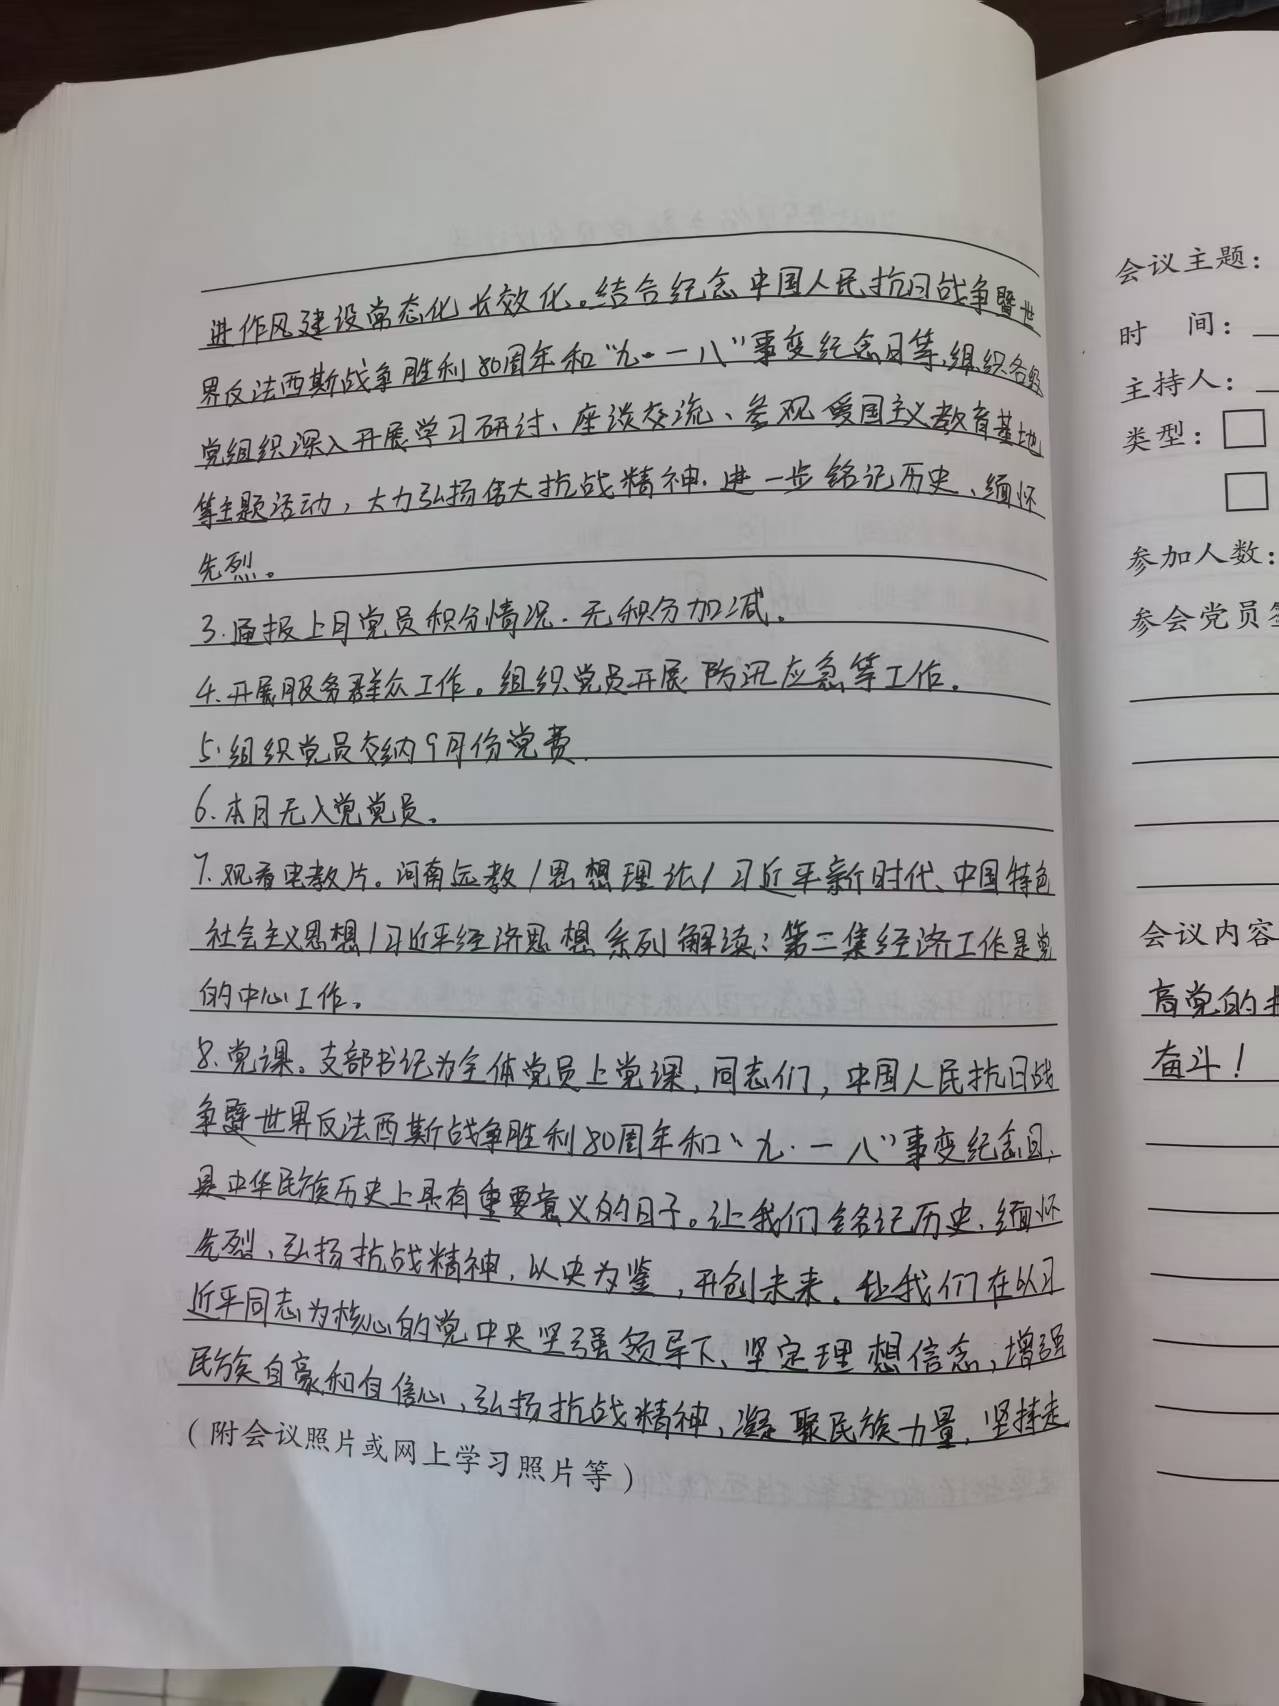 进作风建设常态化长效化。结合纪念中国人民抗日战争暨世
界反法西斯战争胜利80周年和“九·一八”事变纪念日等,组织各级
党组织深入开展学习研讨、座谈交流、参观爱国主义教育基地
等主题活动，大力弘扬伟大抗战精神.进一步铭记历史、缅怀
先烈。
3.通报上月党员积分情况.无积分加减.
4.开展服务群众工作。组织党员开展防汛应急等工作.
5.组织党员交纳9月份党费.
6.本月无入党党员。
7.观看电教片。河南远教/思想理论/习近平新时代、中国特色
社会主义思想/习近平经济思想系列解读:第二集经济工作是党
的中心工作。
8.党课。支部书记为全体党员上党课,同志们,中国人民抗日战
争暨世界反法西斯战争胜利80周年和“九·一八”事变纪念日,
是中华民族历史上具有重要意义的日子。让我们铭记历史、缅怀
先烈、弘扬抗战精神，以史为鉴，开创未来。让我们在以习
近平同志为核心的党中央坚强领导下、坚定理想信念,增强
民族自豪和自信心,弘扬抗战精神,凝聚民族力量,坚持走
(附会议照片或网上学习照片等)
会议主题:
时 间:
主持人:
类型:□
□
参加人数:
参会党员
会议内容
高党的
奋斗！